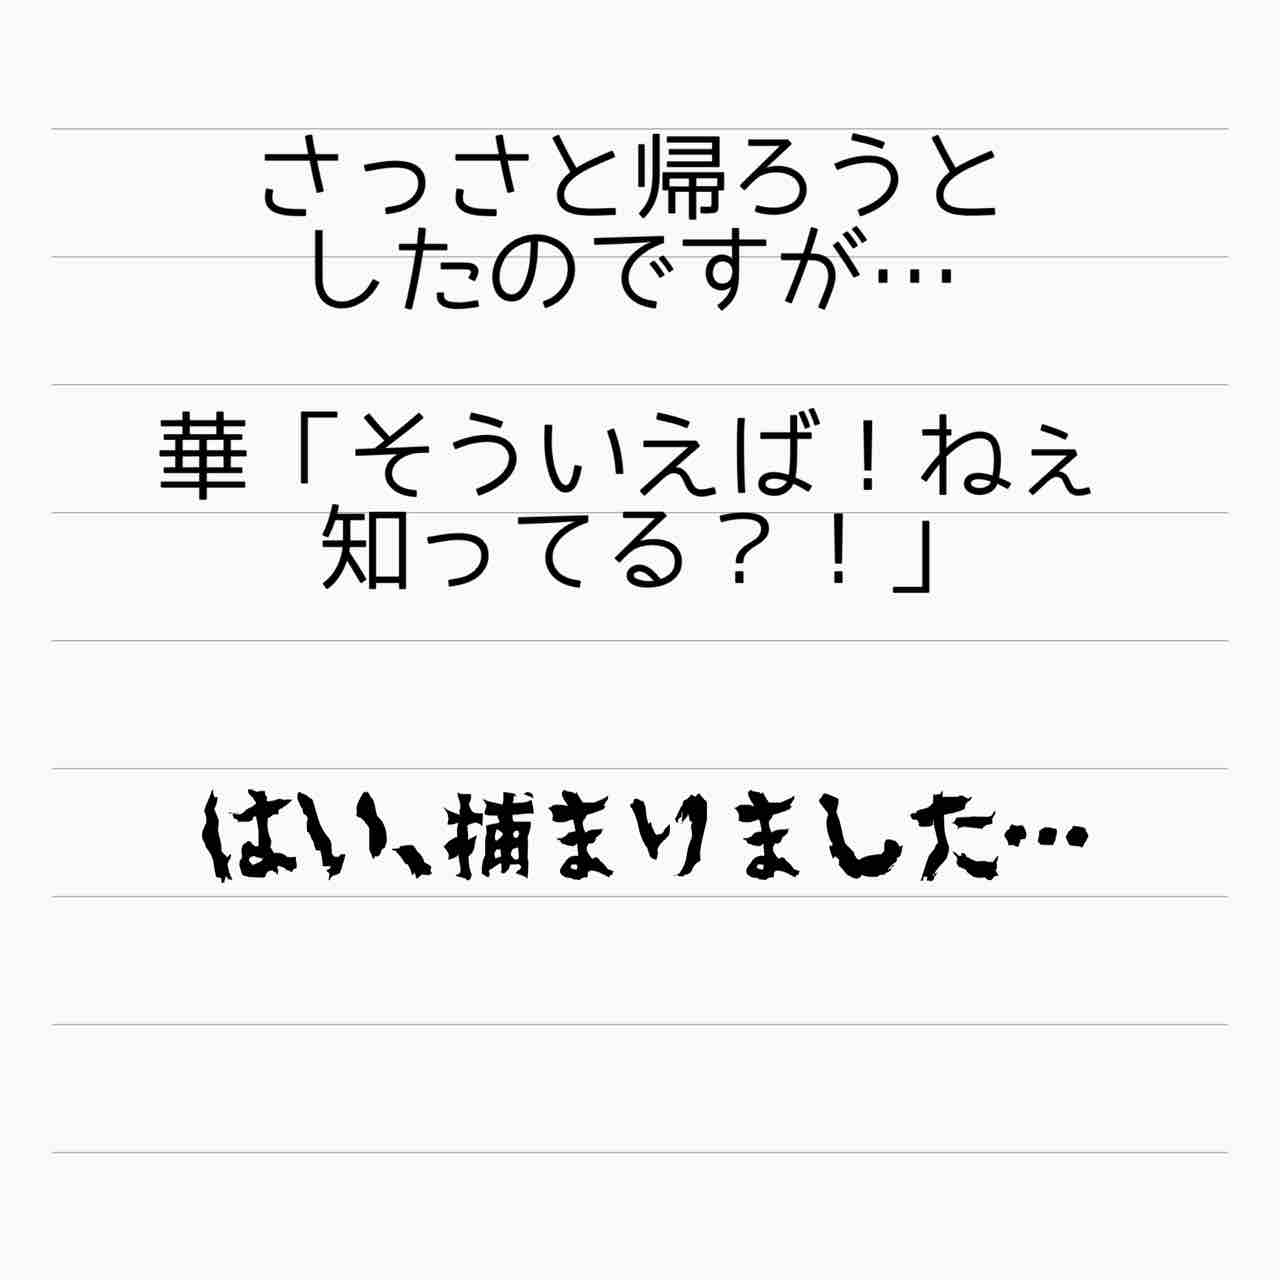 さっさと帰ろうと
したのですが…
華「そういえば！ねぇ
知ってる？！」
はい、捕まりました…